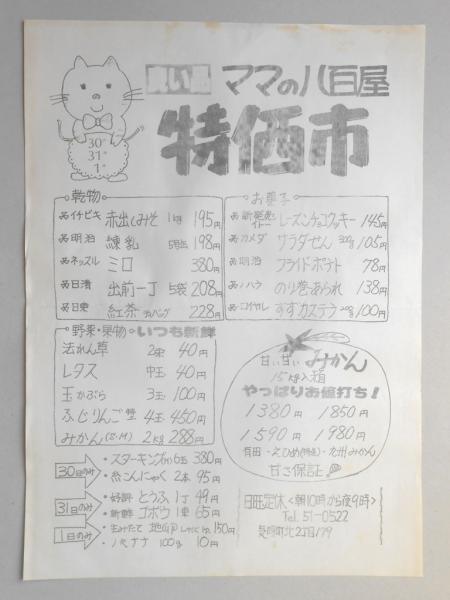 良い品
ママの八百屋
特価市
30日
31日
1日
乾物
イチビキ 赤出しみそ 1kg 195円
明治 練乳 198円
ネッスル ミロ 380円
日清 出前一丁 5袋 208円
日東 紅茶 228円
お菓子
レーズンチョコクッキー 145円
カメダ サラダせん 105円
明治 フライドポテト 78円
のり巻あられ 138円
ロイヤル すずカステラ 100円
野菜・果物 いつも新鮮
法れん草 2束 40円
レタス 中玉 40円
玉かぶら 3玉 100円
ふじりんご 4玉 450円
みかん(S・M) 2kg 288円
甘い甘い みかん
15kg入箱
やっぱりお値打ち!
1380円 1850円
1590円 1980円
有田・えひめ・九州みかん
甘さ保証
30日のみ
・スターキング 6玉 380円
・糸こんにゃく 2本 95円
31日のみ
・好評 とうふ 1丁 49円
・新鮮 ゴボウ 1束 65円
1日のみ
150円
・バナナ 100g 10円
日曜定休<朝10時から夜9時>
Tel. 51-0522